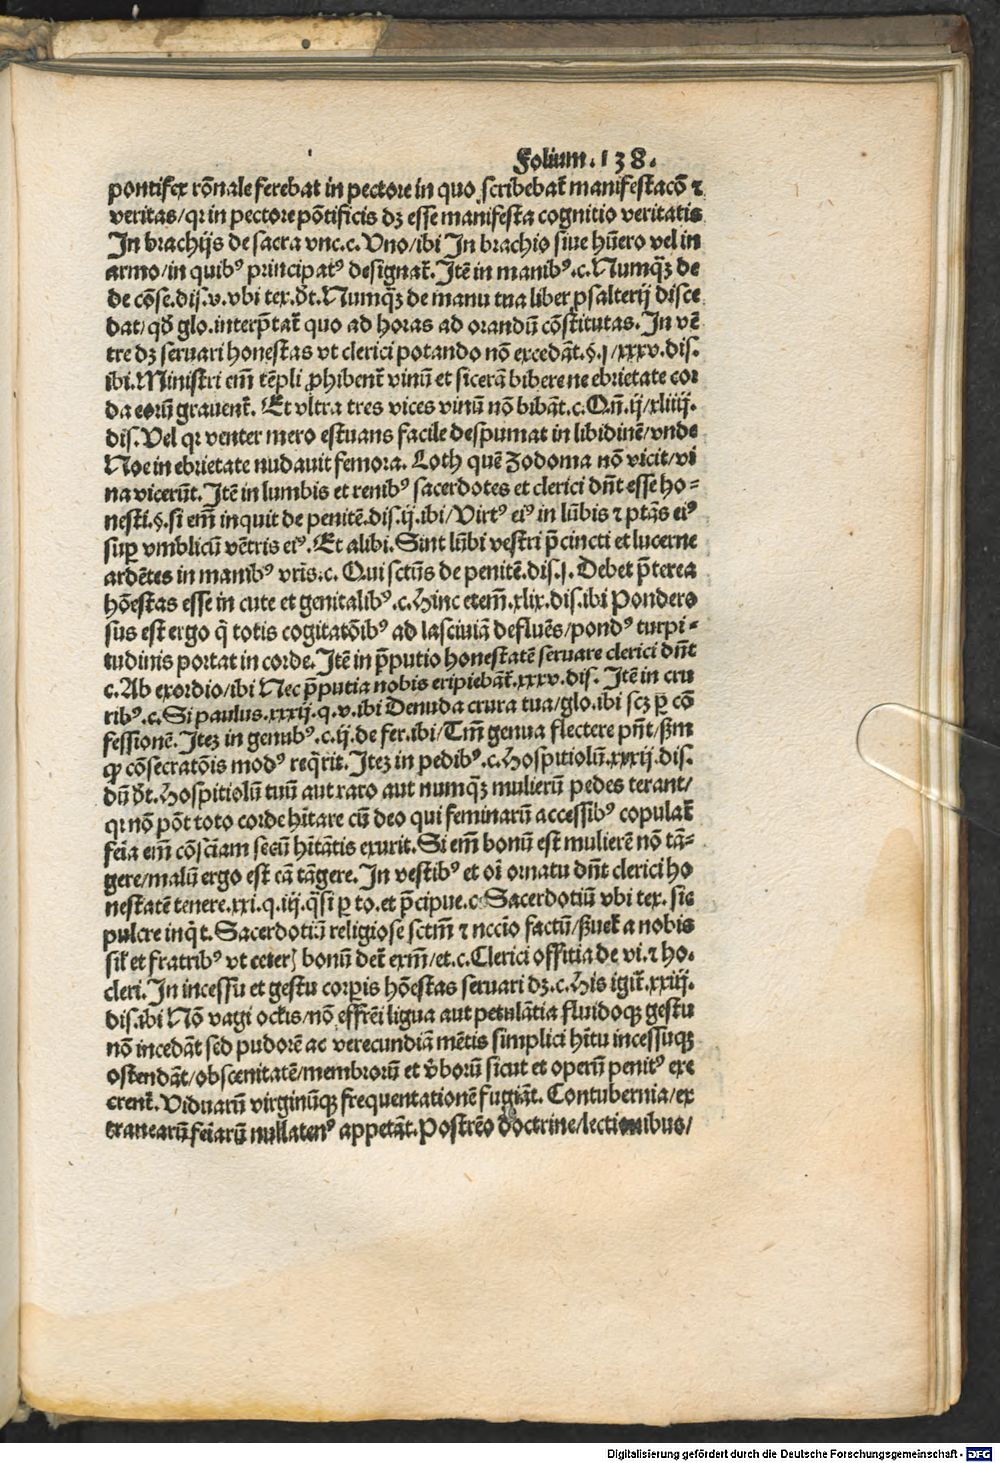 Folium.138.
pontifex rōnale ferebat in pectore in quo scribebat᷑ manifestacō ⁊
veritas/qꝛ in pectore pōtificis dꝫ esse manifesta cognitio veritatis
In brachijs de sacra vnc.c. Uno/ibi In brachio siue hūero vel in
armo/in quibꝰ principatꝰ designat᷑. Itē in manibꝰ.c. Numqͣꝫ de
de cōse.dis.v.vbi tex.dt̄. Numqͣꝫ de manu tua liber psalterij disce
dat/qd̄ glo.interp̄tat᷑ quo ad horas ad orandū cōstitutas. In vē
tre dꝫ seruari honestas vt clerici potando nō excedāt.§.j/xxxv.dis.
ibi. Ministri em̄ tēpli ꝓhibent᷑ vinū et sicerā bibere ne ebrietate coꝛ
da eoꝛū grauent᷑. Et vltra tres vices vinū nō bibāt.c. Qn̄.ij/xliiij.
dis. Vel qꝛ venter mero estuans facile despumat in libidinē/vnde
Noe in ebrietate nudauit femora. Loth quē Zodoma nō vicit/vi
na vicerūt. Itē in lumbis et renibꝰ sacerdotes et clerici dn̄t esse ho⸗
nesti.§.si em̄ inquit de penitē.dis.ij.ibi/Virtꝰ eiꝰ in lūbis ⁊ ptās eiꝰ
suꝑ vmblicū vētris eiꝰ. Et alibi. Sint lūbi vestri p̄cincti et lucerne
ardētes in manibꝰ vrīs.c. Qui sctūs de penitē.dis.j. Debet p̄terea
hōestas esse in cute et genitalibꝰ.c. Hinc etem̄.xlix.dis.ibi Pondero
sus est ergo q̄ totis cogitatōibꝰ ad lasciuiā defluēs/pondꝰ turpi⸗
tudinis portat in corde. Itē in p̄putio honestatē seruare clerici dn̄t
c. Ab exordio/ibi Nec p̄putia nobis eripiebāt᷑.xxxv.dis. Itē in cru
ribꝰ.c. Si paulus.xxxij.q.v.ibi Denuda crura tua/glo.ibi scꝫ ꝑ cō
fessionē. Iteꝫ in genubꝰ.c.ij.de fer.ibi/Tm̄ genua flectere pn̄t/ẞm
ꝙ cōsecratōis modꝰ req̄rit. Iteꝫ in pedibꝰ.c. Hospitiolū.xxxij.dis.
dū dt̄. Hospitiolū tuū aut raro aut numqͣꝫ mulierū pedes terant/
qꝛ nō pōt toto corde hītare cū deo qui feminarū accessibꝰ copulat᷑
feīa em̄ cōsciam secū hītātis exurit. Si em̄ bonū est mulierē nō tā⸗
gere/malū ergo est eā tāgere. In vestibꝰ et oī ornatu dn̄t clerici ho
nestatē tenere.xxi.q.iij.q̄si ꝑ to.et p̄cipue.c. Sacerdotiū vbi tex. sic
pulcre inq̇t. Sacerdotiū religiose sctm̄ ⁊ nccīo factū/ẞuet᷑ a nobis
sil᷑ et fratribꝰ vt ceterꝭ bonū det᷑ exm̄/et.c. Clerici offitia de vi.⁊ ho.
cleri. In incessu et gestu corꝑis hōestas seruari dꝫ.c. His igit᷑.xxiij.
dis.ibi Nō vagi ocl᷑is/nō effrēi ligua aut petulātia fluidoqꝫ gestu
nō incedāt sed pudorē ac verecundiā mētis simplici hītu incessuqꝫ
ostendāt/obscenitatē/membroꝛū et v̄boꝛū sicut et operū penitꝰ exe
crent᷑. Viduarū virginūqꝫ frequentationē fugiāt. Contubernia/ex
tranearū feīarū nullatenꝰ appetāt. Postrēo doctrine/lectionibus/
Digitalisierung gefördert durch die Deutsche Forschungsgemeinschaft - DFG